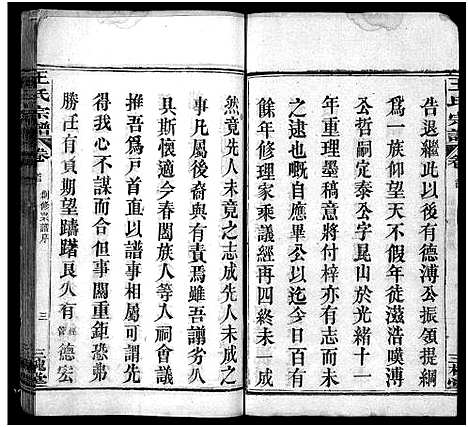 王氏宗譜
告退繼此以後有德溥公振領提綱
為一族仰望天不假年徒滋浩嘆溥
公哲嗣定泰公字崑山於光緒十一
年重理墨稿意將付梓亦有志而未
之逮也嘅自應畢公以迄今日百有
餘年修理家乘議經四終未一成
三槐堂
然竟先人未竟之志成先人未成之
事凡屬後裔與有責焉雖吾讓劣八
具斯懷適今春闔族人等入祠會議
推吾為戶首直以譜事相屬可謂先
得我心不謀而合但事關重鉅恐弗
勝任有負期望躊躇良久有經管德宏
王氏宗譜
卷首
創修宗譜序
三
三槐堂